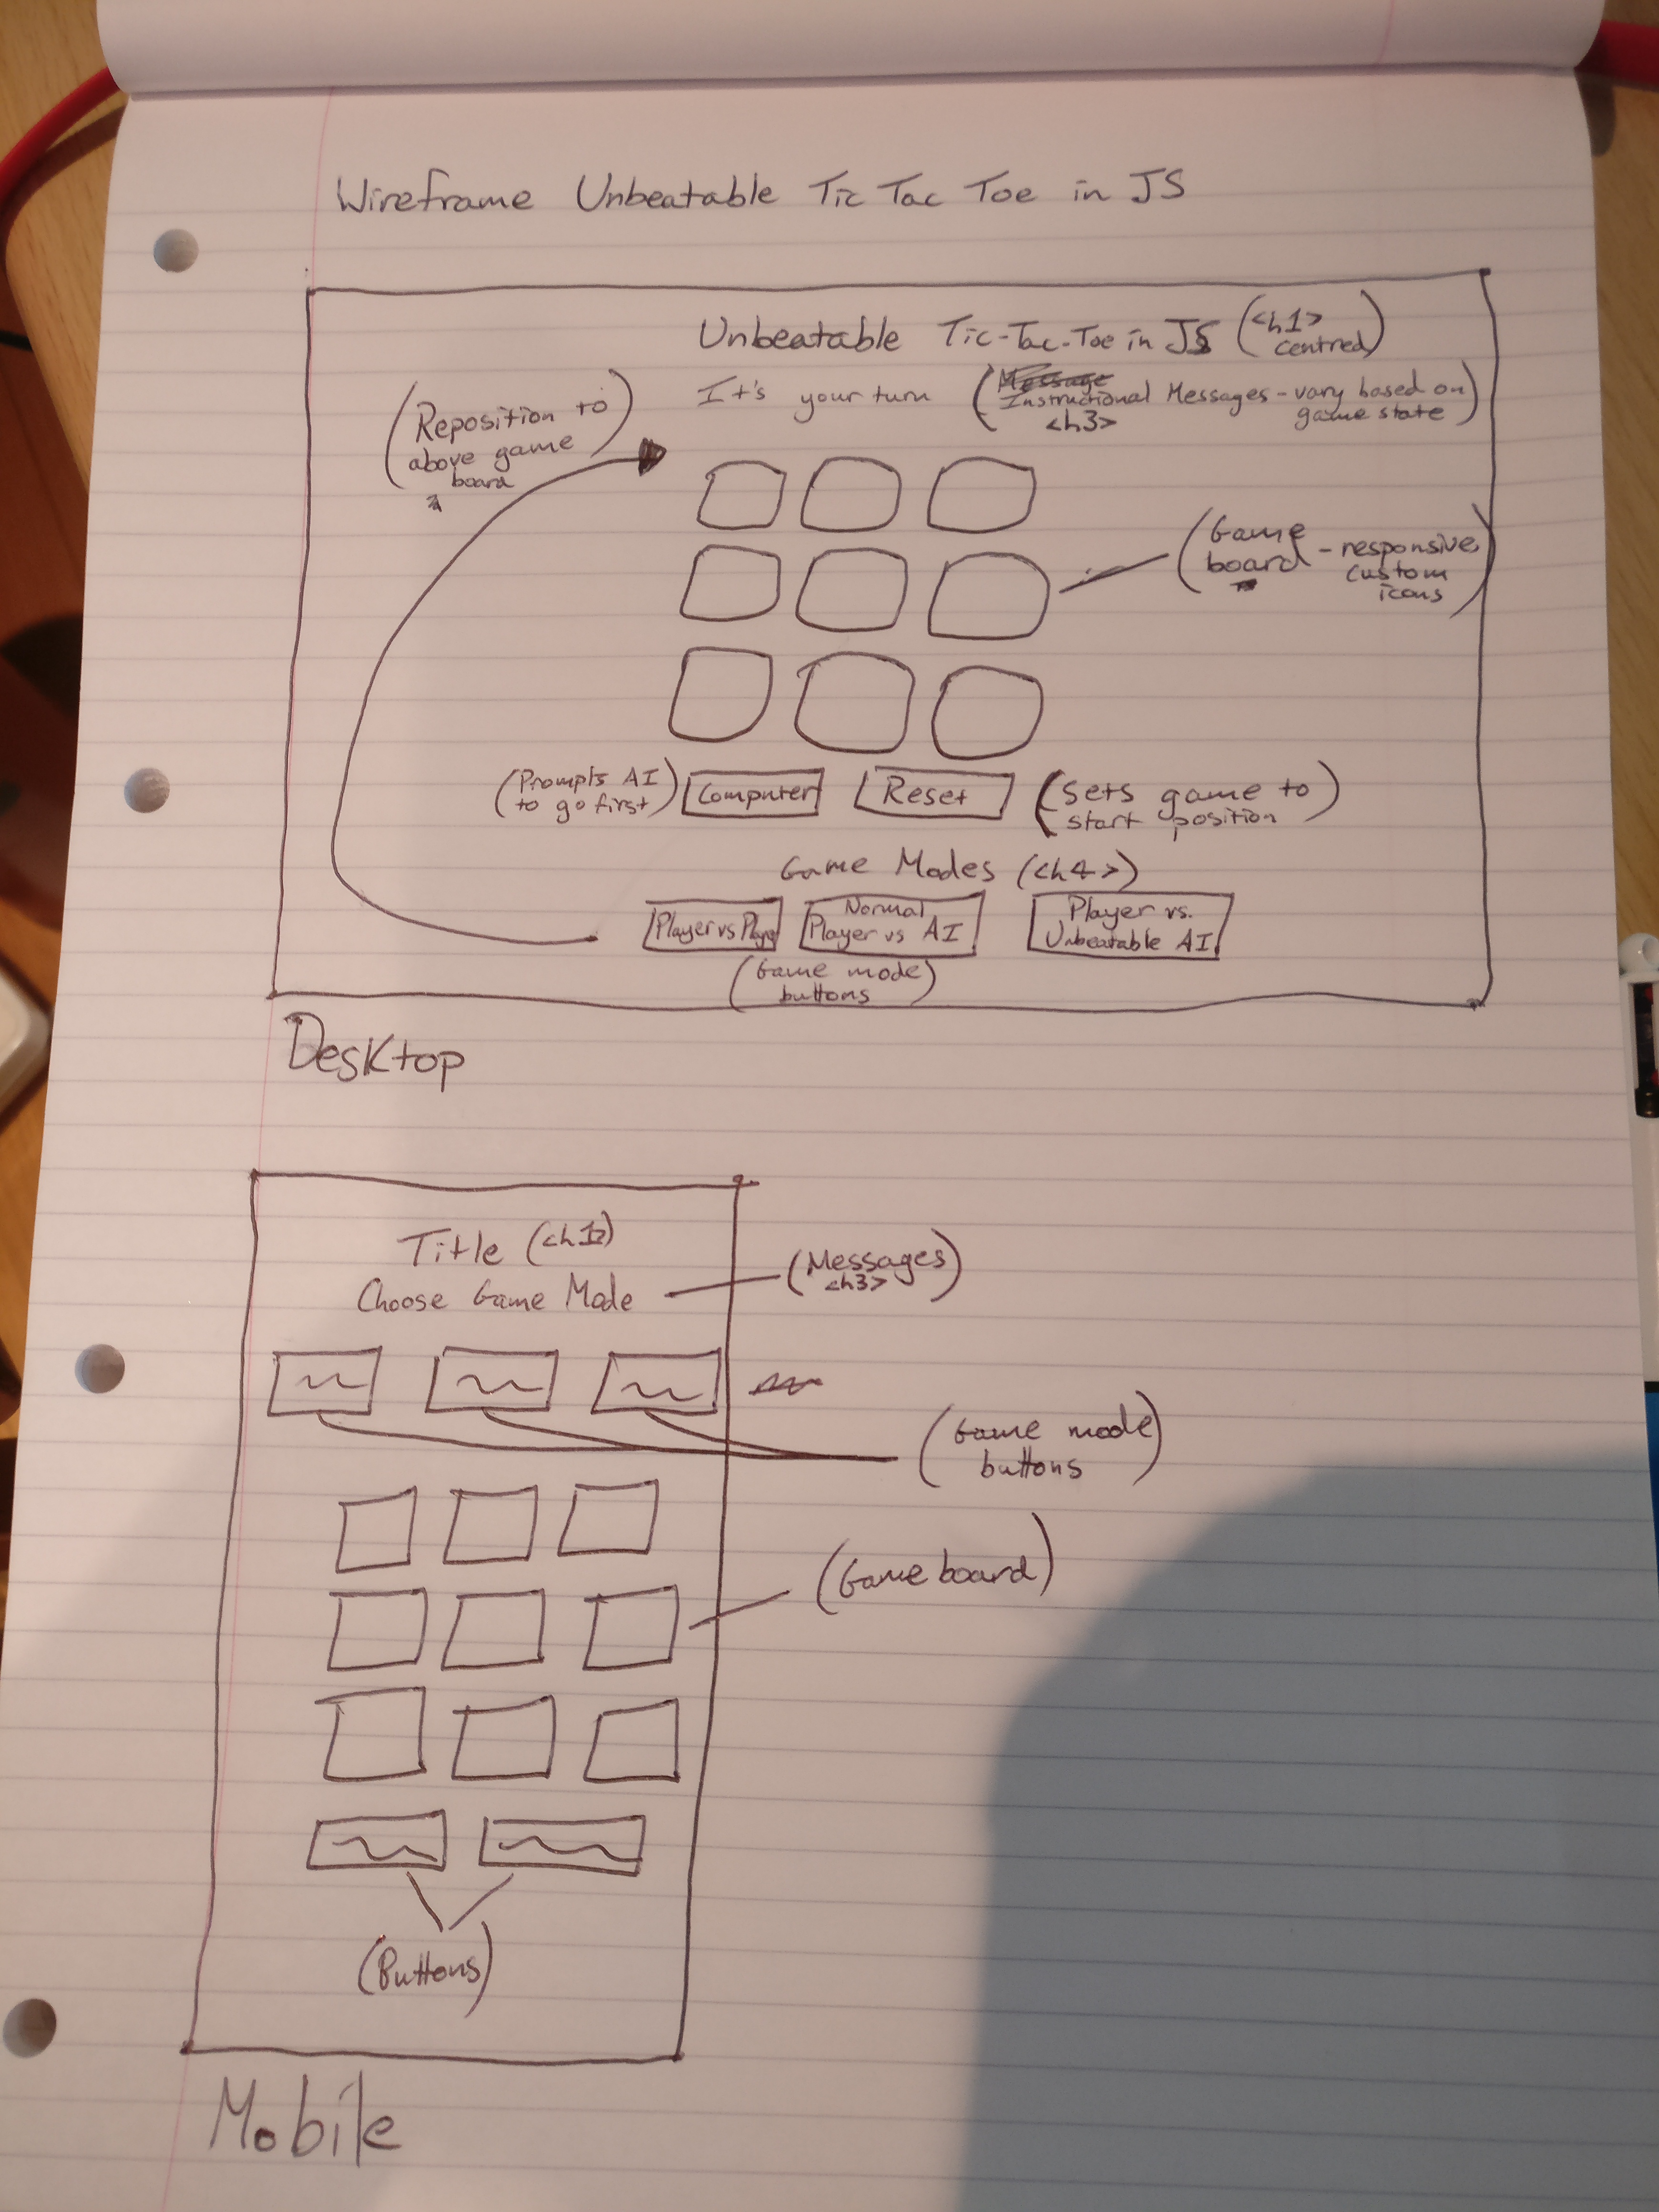 Wireframe Unbeatable Tic Tac Toe in JS
Unbeatable Tic-Tac-Toe in JS (<h1>
centred)
It's your turn (Instructional Messages - vary based on
<h3> game state)
(Reposition to
above game
board)
(Game
board - responsive,
custom
icons)
(Prompts AI
to go first)
Computer
Reset
(Sets game to
start position)
Game Modes (<h4>)
Player vs Player
Normal
Player vs AI
Player vs.
Unbeatable AI
(Game mode
buttons)
Desktop
Title (<h1>)
Choose Game Mode
(Messages
<h3>)
(Game mode
buttons)
(Game board)
(Buttons)
Mobile